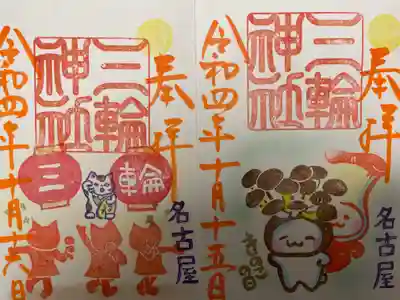 奉拝
三輪
神社
三輪
名古屋
令和四年十月十六日
奉拝
三輪
神社
名古屋
きのこの日
令和四年十月十五日